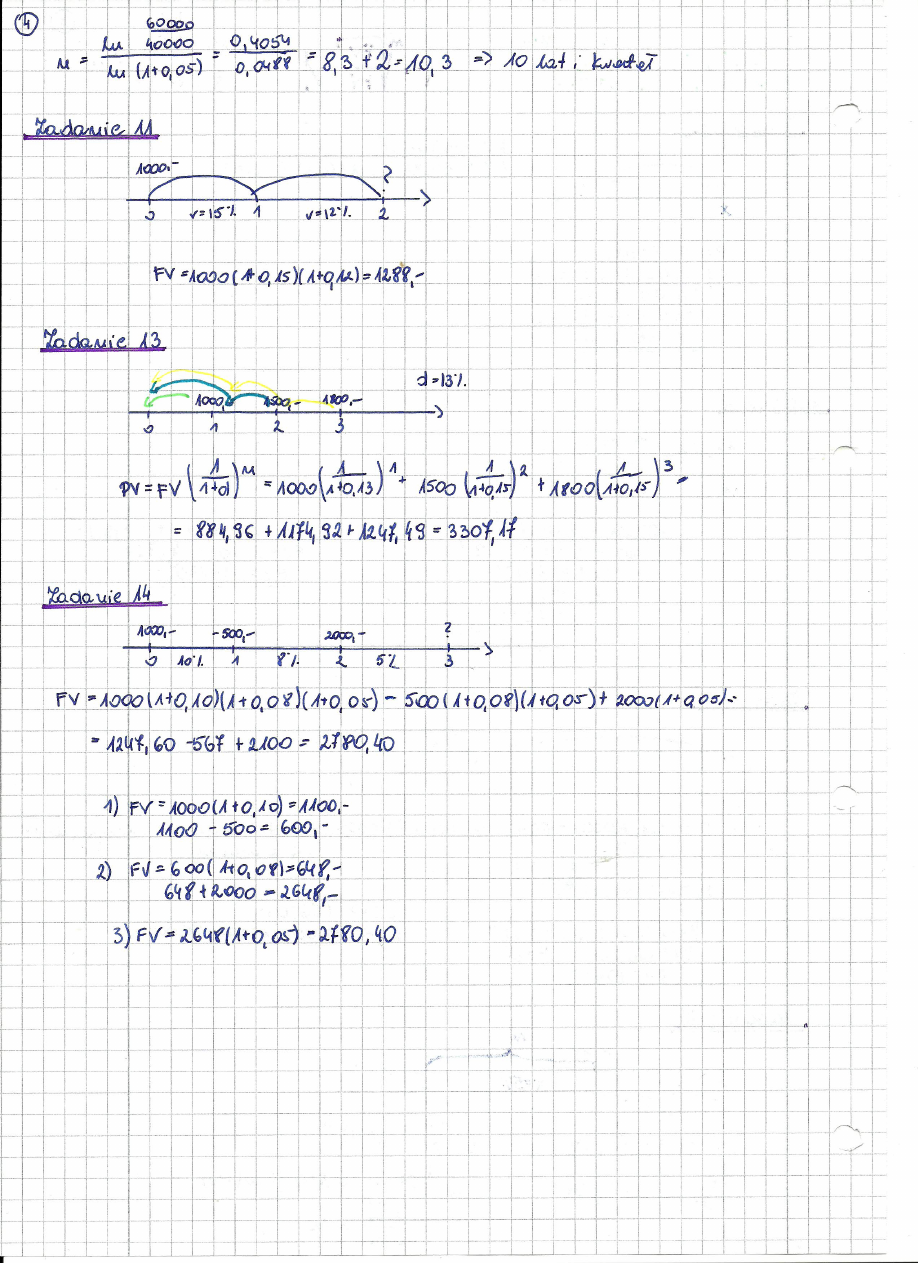 4
n = ln 60000/40000 / ln (1+0,05) = 0,4054/0,0488 = 8,3 + 2 = 10,3 => 10 lat i kwartał
Zadanie 11
1000,- ?
0 r=15% 1 r=12% 2
FV = 1000(1+0,15)(1+0,12) = 1288,-
Zadanie 13
d = 13%
1000,- 1500,- 1800,-
0 1 2 3
PV = FV (1/1+d)^n = 1000(1/1+0,13)^1 + 1500 (1/1+0,15)^2 + 1800(1/1+0,15)^3 =
= 884,96 + 1174,92 + 1247,49 = 3307,17
Zadanie 14
1000,- -500,- 2000,- ?
0 10% 1 8% 2 5% 3
FV = 1000(1+0,10)(1+0,08)(1+0,05) - 500(1+0,08)(1+0,05) + 2000(1+0,05) =
= 1247,60 - 567 + 2100 = 2780,40
1) FV = 1000(1+0,10) = 1100,-
1100 - 500 = 600,-
2) FV = 600(1+0,08) = 648,-
648 + 2000 = 2648,-
3) FV = 2648(1+0,05) = 2780,40